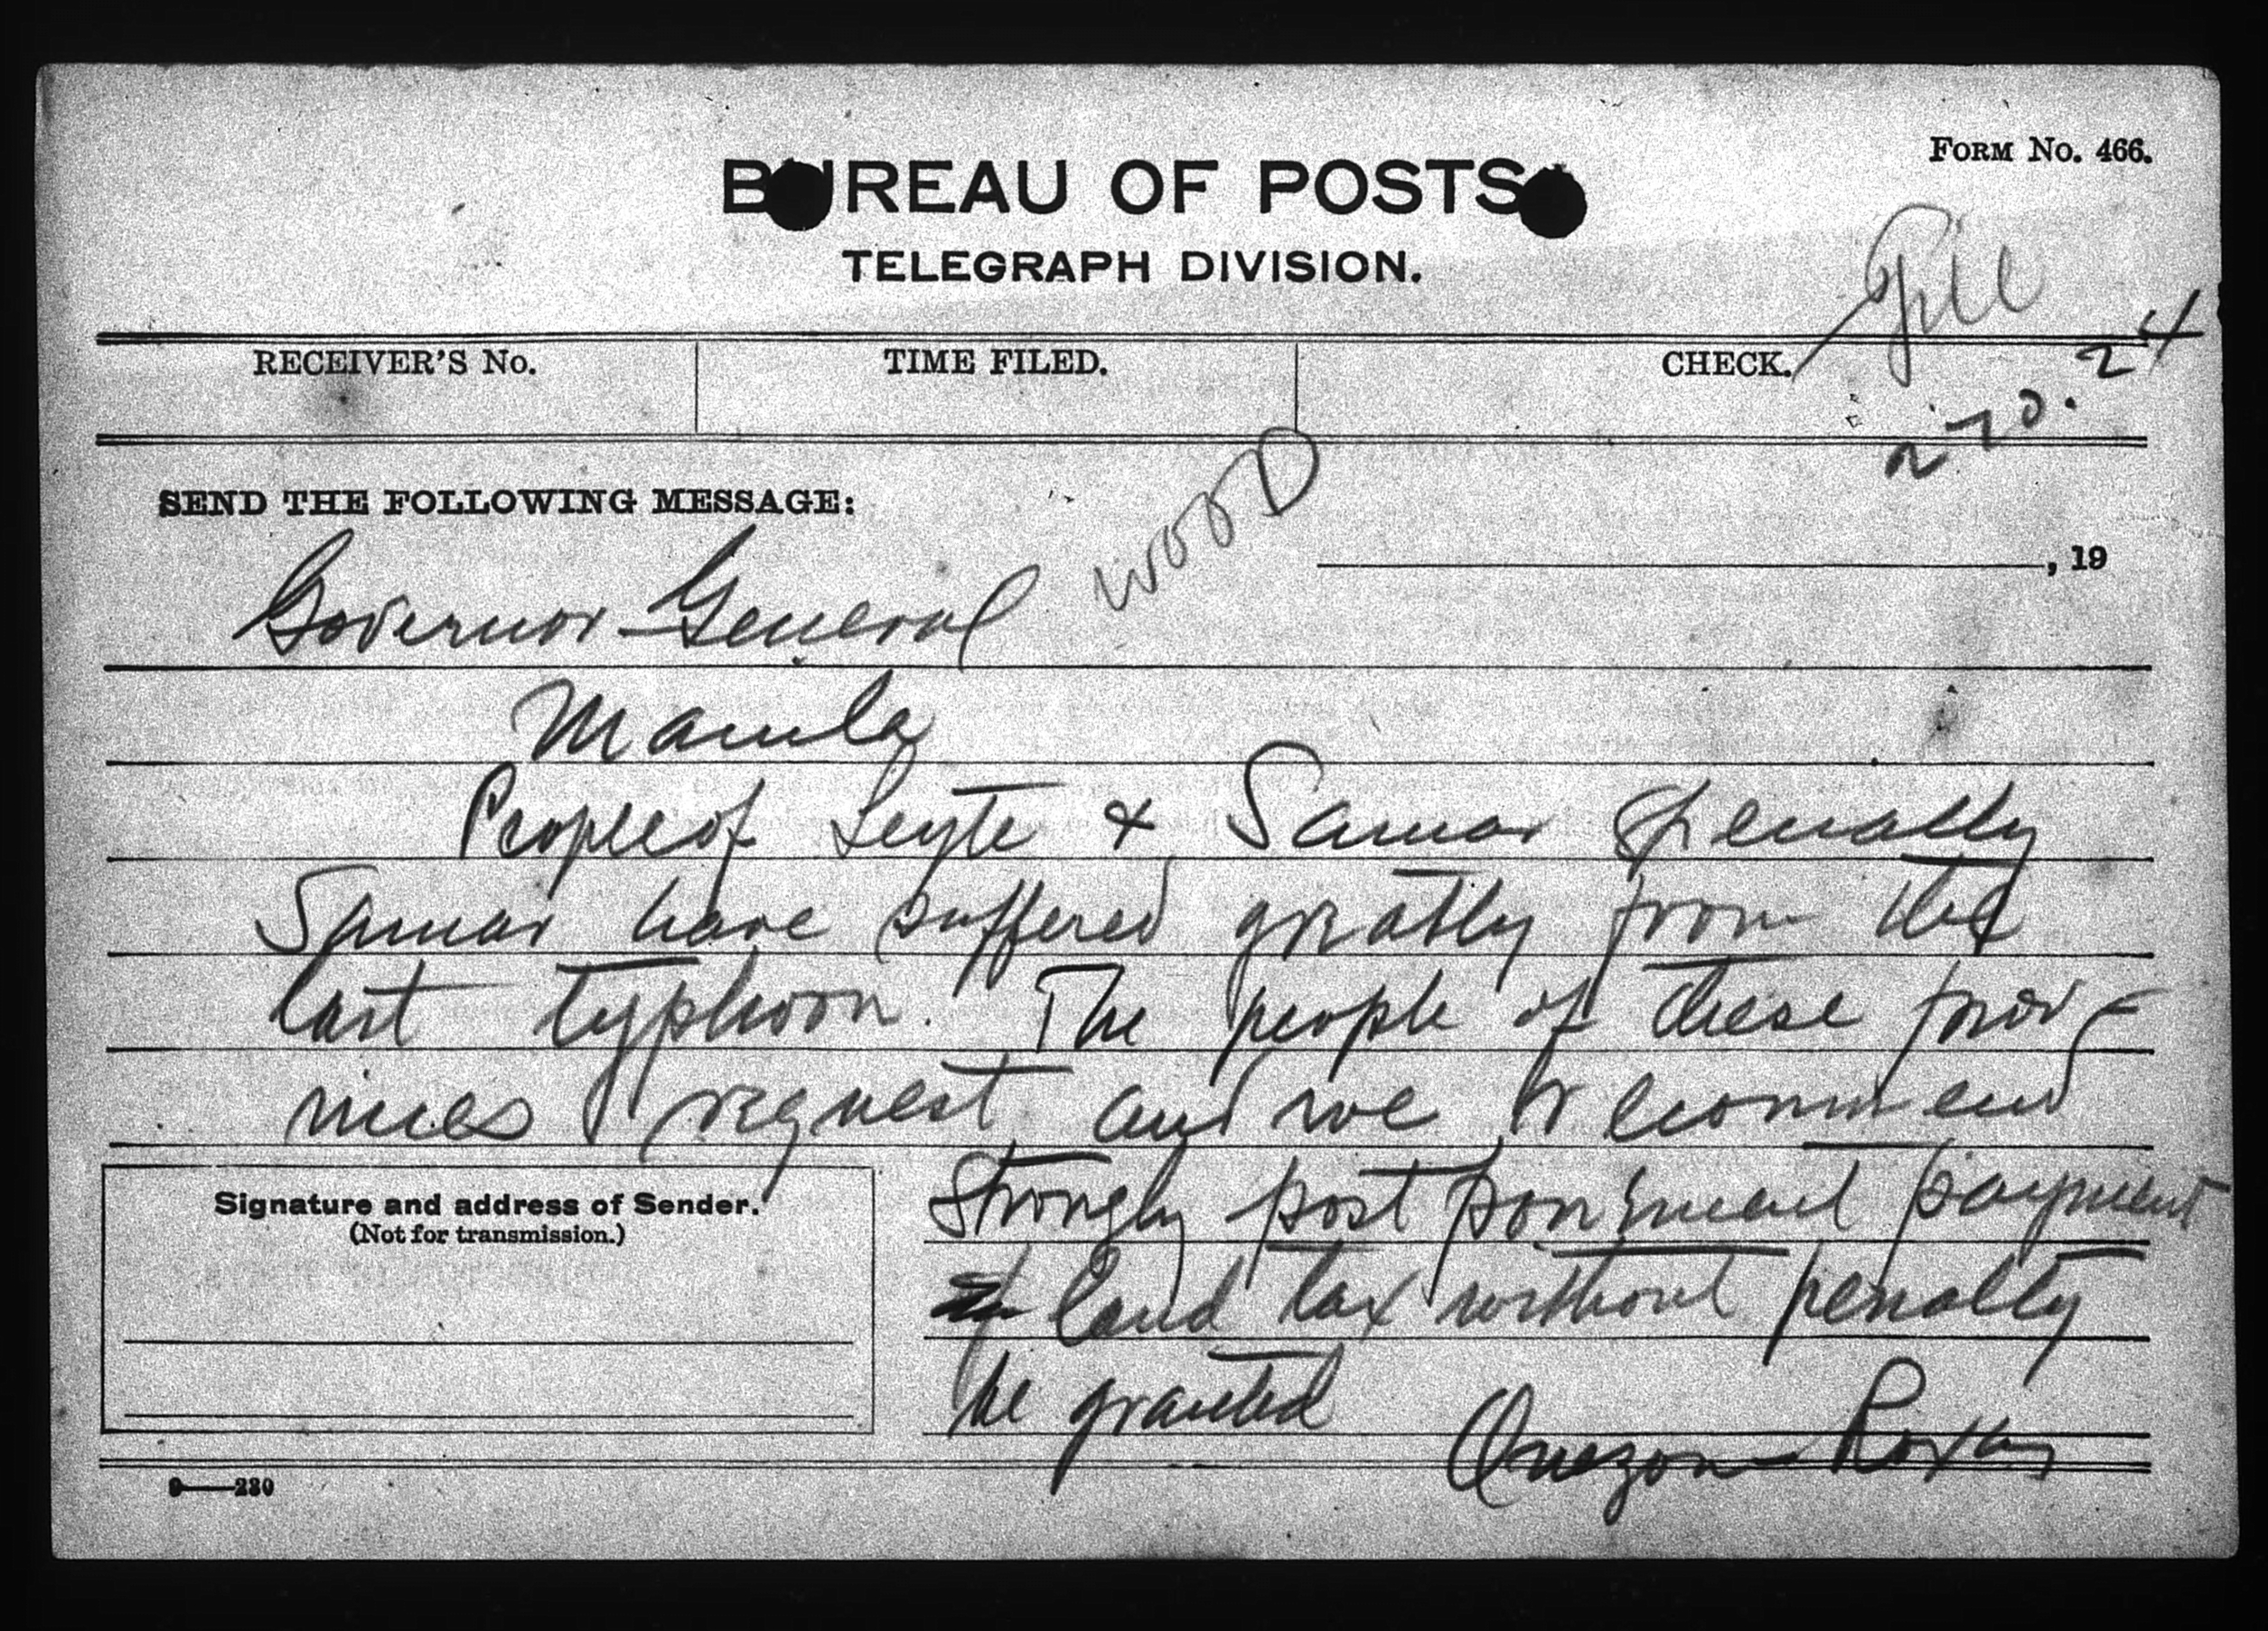 FORM No. 466.
BUREAU OF POSTS
TELEGRAPH DIVISION.
File
RECEIVER'S No. TIME FILED. CHECK.
24
WOOD
SEND THE FOLLOWING MESSAGE:
, 19
Governor-General
Manila
People of Leyte & Samar
Samar have suffered greatly from the
last typhoon. The people of these prov-
inces request and we recommend
Signature and address of Sender.
(Not for transmission.)
strongly postponement payment
of land tax without penalty
be granted
Quezon-Roxas
9—230